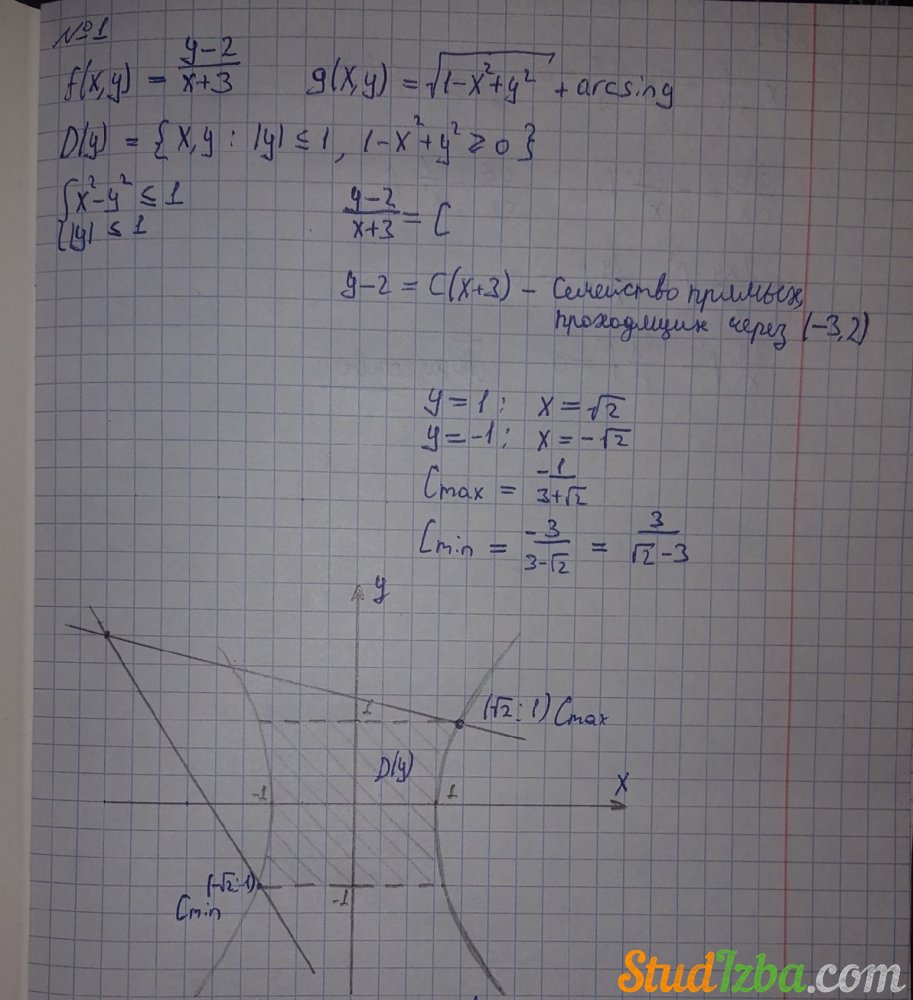 №1
f(x,y) = \frac{y-2}{x+3} g(x,y) = \sqrt{1-x^2+y^2} + arcsin y
D(y) = {x,y : |y| ≤ 1, 1-x^2+y^2 ≥ 0}
{x^2-y^2 ≤ 1
{|y| ≤ 1
\frac{y-2}{x+3} = C
y-2 = C(x+3) – семейство прямых,
проходящих через (-3,2)
y=1: x=√2
y=-1: x=-√2
Cmax = \frac{-1}{3+√2}
Cmin = \frac{-3}{3-√2} = \frac{3}{√2-3}
y
1
(√2; 1) Cmax
D(y)
x
-1
1
(-√2;-1)
-1
Cmin
StudIzba.com